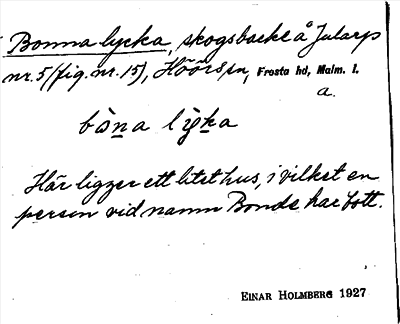 Bonna lycka, skogsbacke å Jularp
nr. 5 (fig. nr. 15), Höörs sn, Frosta hd, Malm. l.
a.
bòn̲a lỳk̲a
Här ligger ett litet hus, i vilket en
person vid namn Bonde har bott.
EINAR HOLMBERG 1927